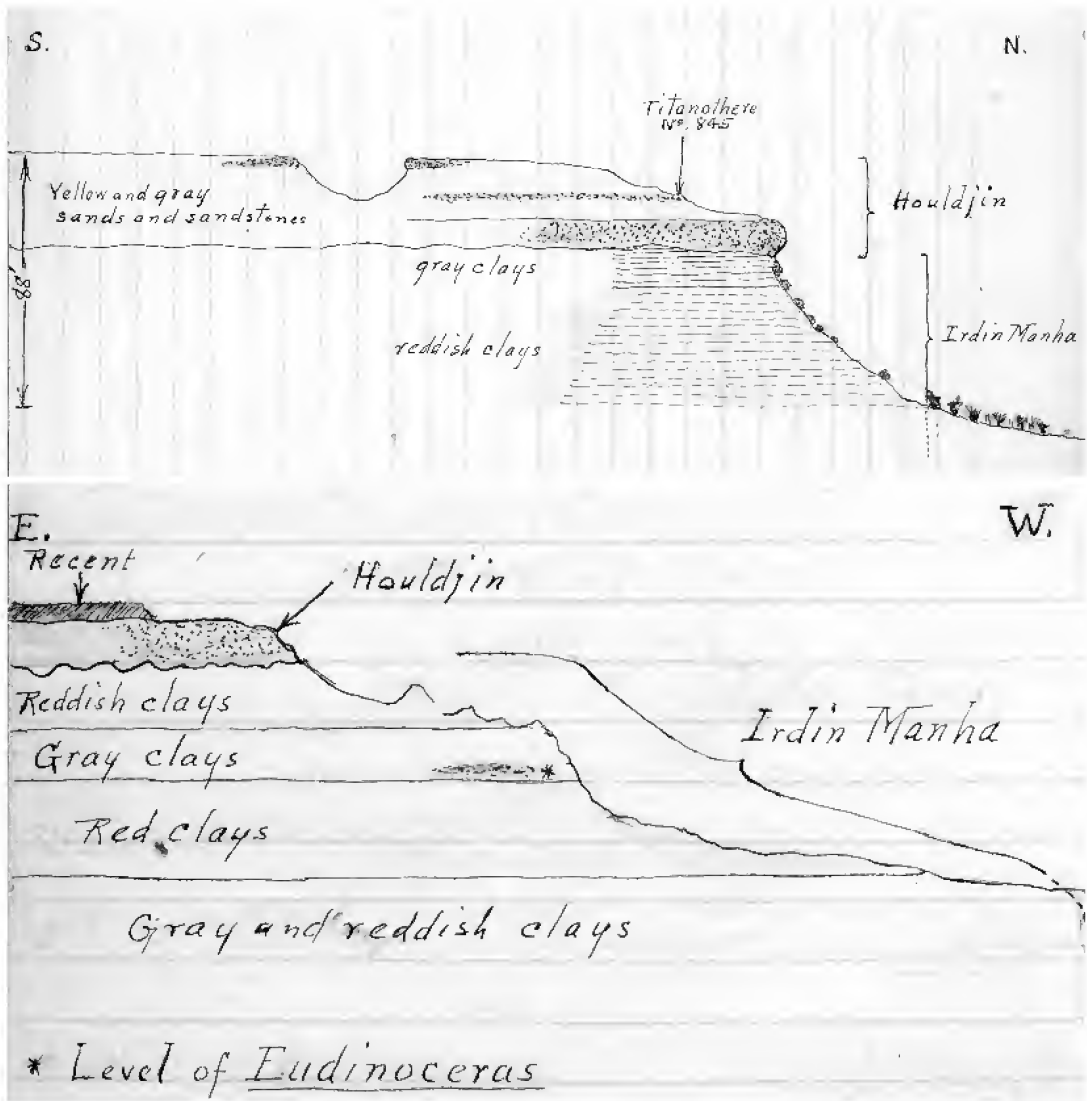 S.
N.
Titanothere
No. 845
Yellow and gray
sands and sandstones
Houldjin
gray clays
88'
reddish clays
Irdin Manha
E.
W.
Recent
Houldjin
Reddish clays
Irdin Manha
Gray clays
*
Red clays
Gray and reddish clays
* Level of Eudinoceras